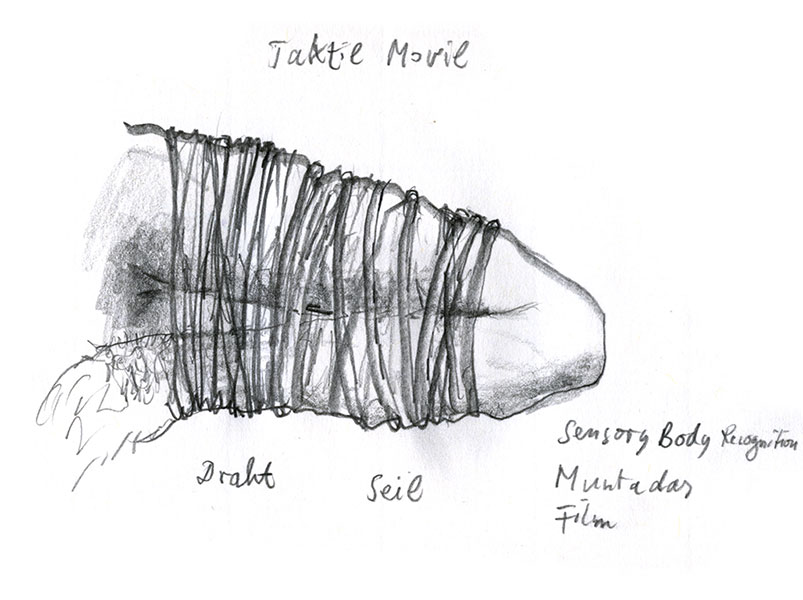 Taktil Movil
Draht
Seil
Sensory Body Recognition
Muntadas
Film